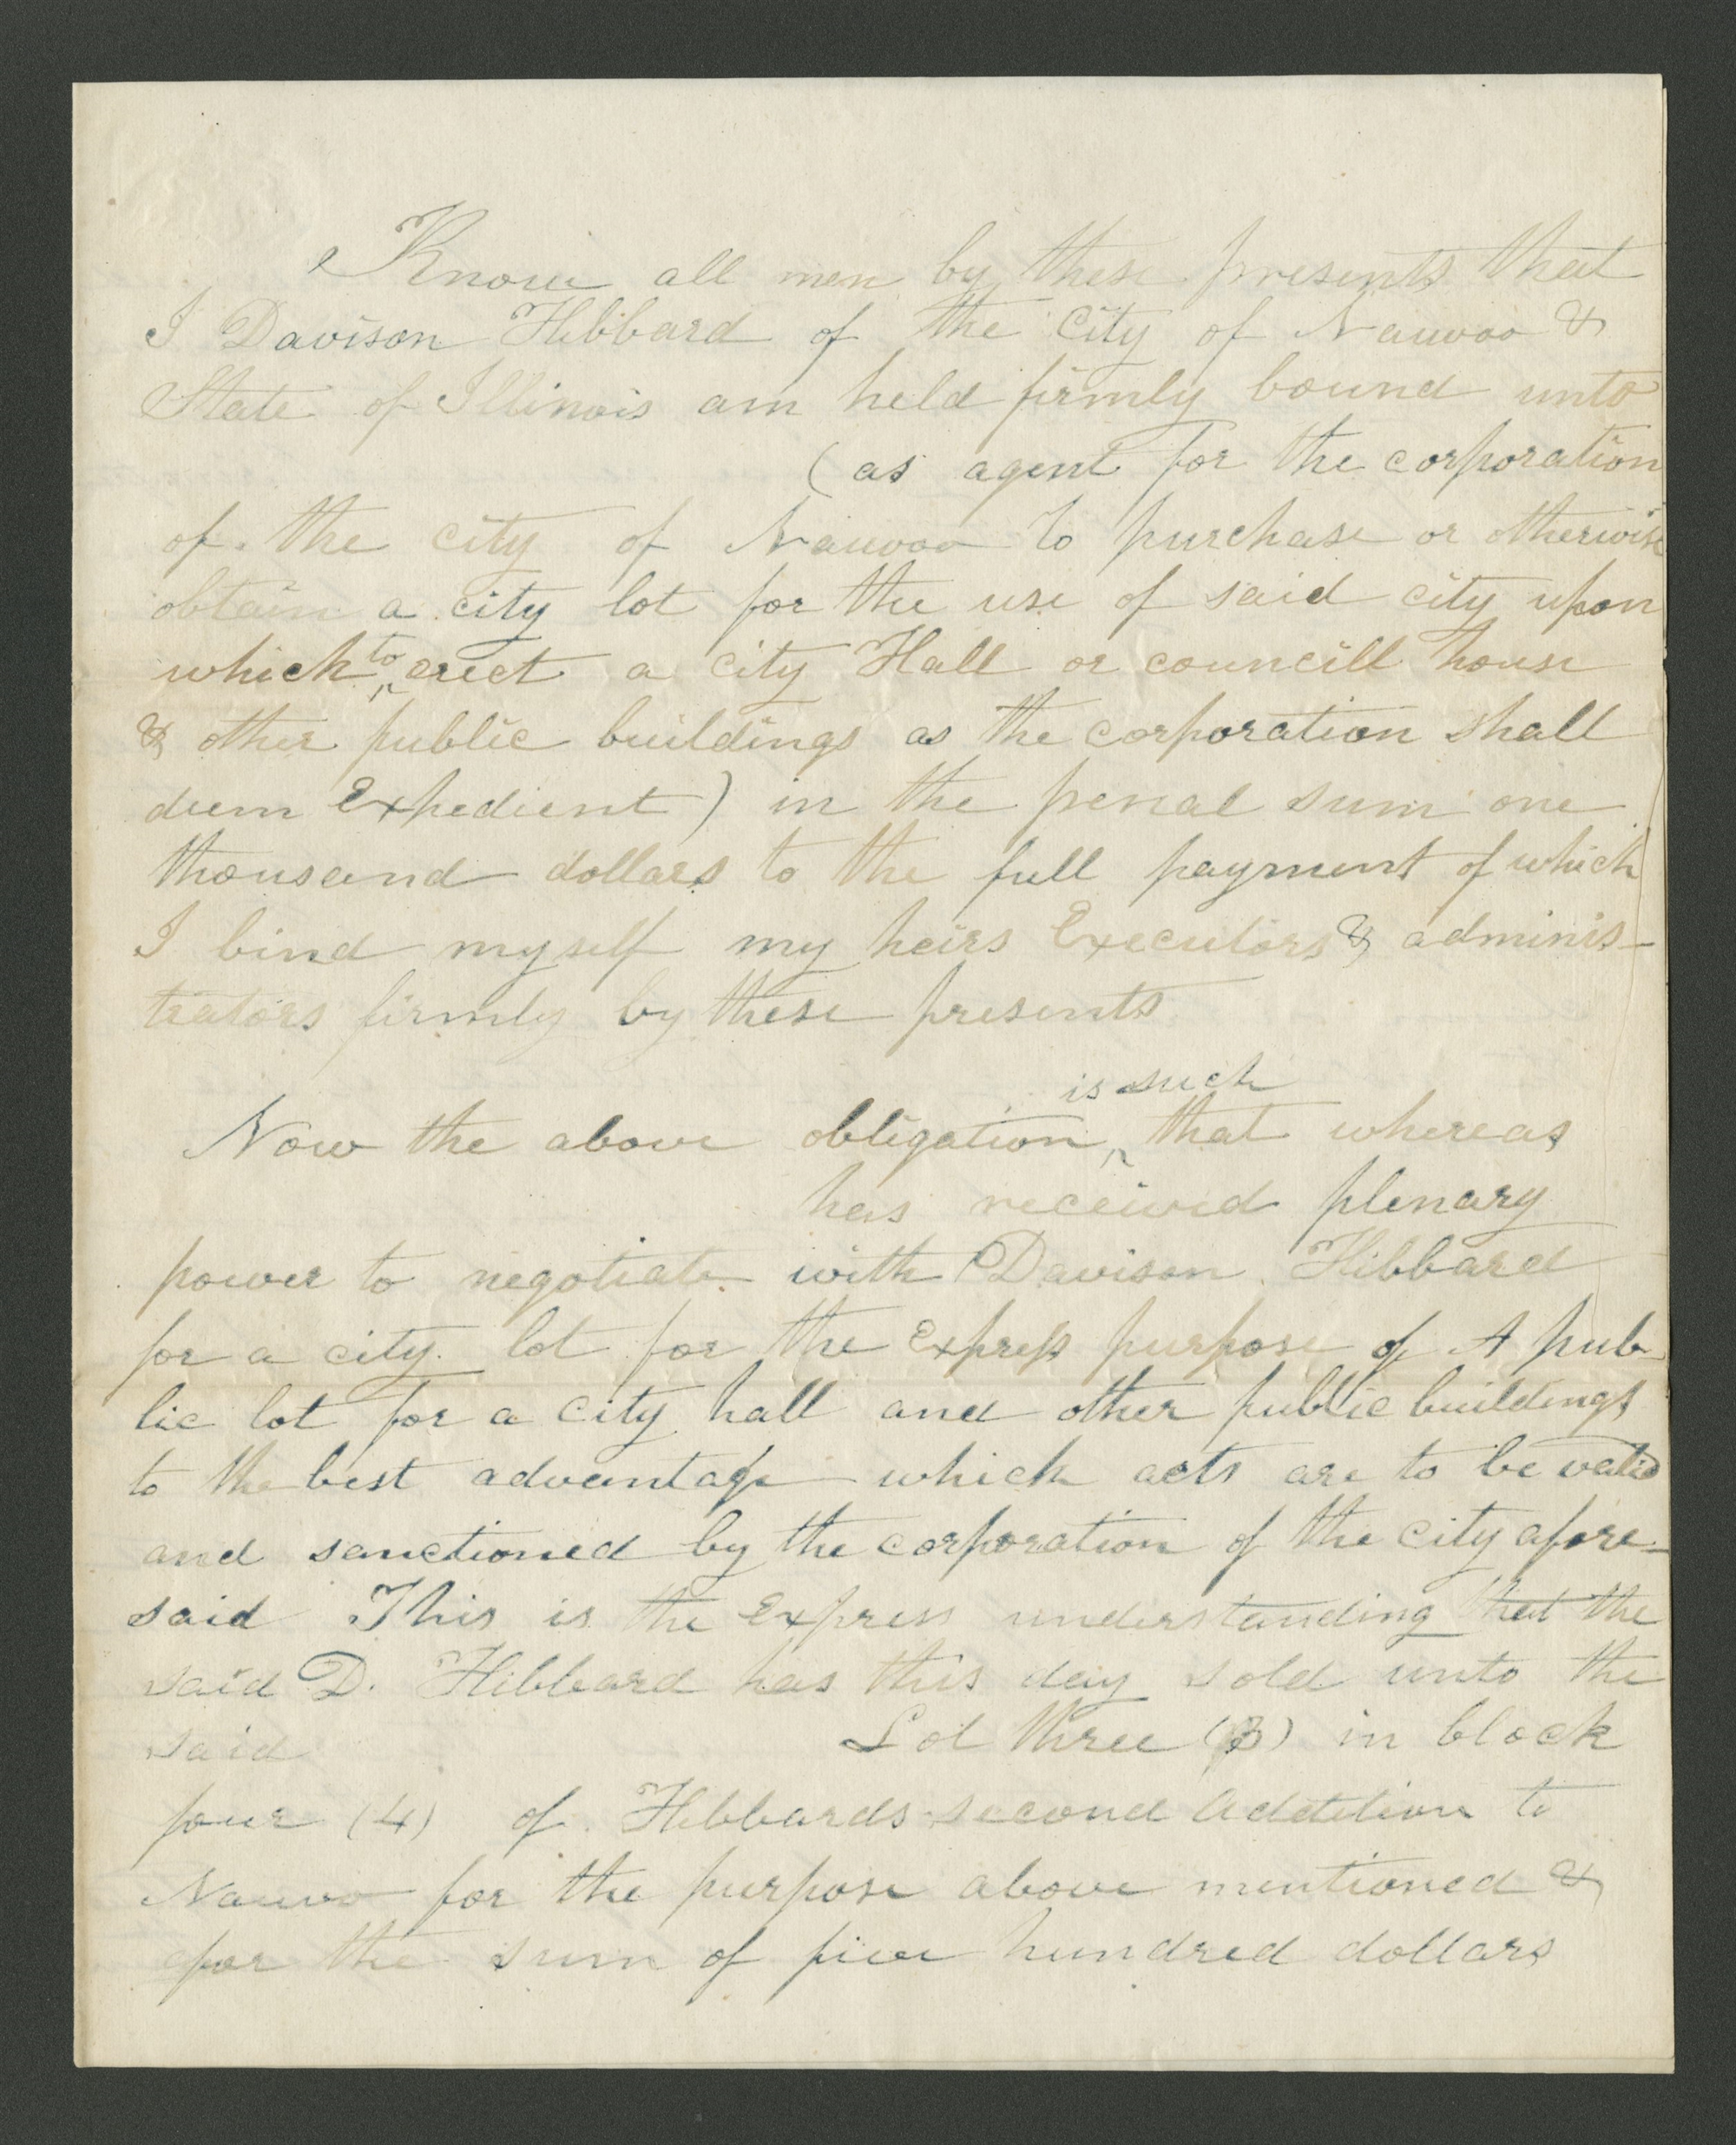 Know all men by these presents that
I Davison Hibbard of the City of Nauvoo &
State of Illinois am held firmly bound unto
(as agent for the corporation
of the city of Nauvoo to purchase or otherwise
obtain a city lot for the use of said city upon
which to erect a city Hall or councill house
& other public buildings as the corporation shall
deem Expedient) in the penal sum one
thousand dollars to the full payment of which
I bind myself my heirs Executors & adminis-
trators firmly by these presents
is such
Now the above obligation that whereas
has received plenary
power to negotiate with Davison Hibbard
for a city lot for the Express purpose of A pub
lic lot for a City hall and other public buildings
to the best advantage which acts are to be valid
and sanctioned by the corporation of the City afore-
said This is the Express understanding that the
said D. Hibbard has this day sold unto the
said Lot three (3) in block
four (4) of Hibbards second Addition to
Nauvo for the purpose above mentioned &
for the sum of five hundred dollars